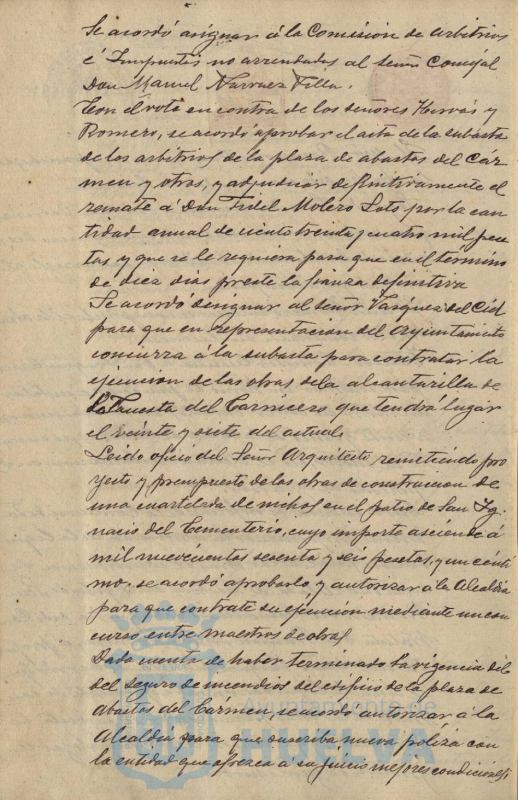 Se acordó asignar á la Comisión de Arbitrios
é Impuestos no arrendados al señor Concejal
Don Manuel Narvaez Villa.
Con el voto en contra de los señores Hervás y
Romero, se acordó aprobar el acta de la subasta
de los arbitrios de la plaza de abastos del Cár-
men y otras, y adjudicar definitivamente el
remate á Don Fidel Molero Soto por la can
tidad anual de ciento treinta y cuatro mil pese
tas y que se le requiera para que en el término
de diez dias preste la fianza definitiva
Se acordó designar al señor Vasquez del Cid
para que en representacion del Ayuntamiento
concurra á la subasta para contratar la
ejecucion de las obras de la alcantarilla de
la Cuesta del Carnicero que tendrá lugar
el veinte y siete del actual.
Leido oficio del Señor Arquitecto remitiendo pro
yecto y presupuesto de las obras de construccion de
una cuartelada de nichos en el patio de San Yg-
nacio del Cementerio, cuyo importe asciende á
mil nuevecientas sesenta y seis pesetas, y un cénti
mo, se acordó aprobarlo y autorizar á la Alcaldia
para que contrate su ejecución mediante un con
curso entre maestros de obras
Dada cuenta de haber terminado la vigencia
del seguro de incendios del edificio de la plaza de
Abastos del Carmen, se acordó autorizar á la
Alcaldia para que suscriba nueva póliza con
la entidad que ofrezca á su juicio mejores condiciones
Ayuntamiento de
HUELVA